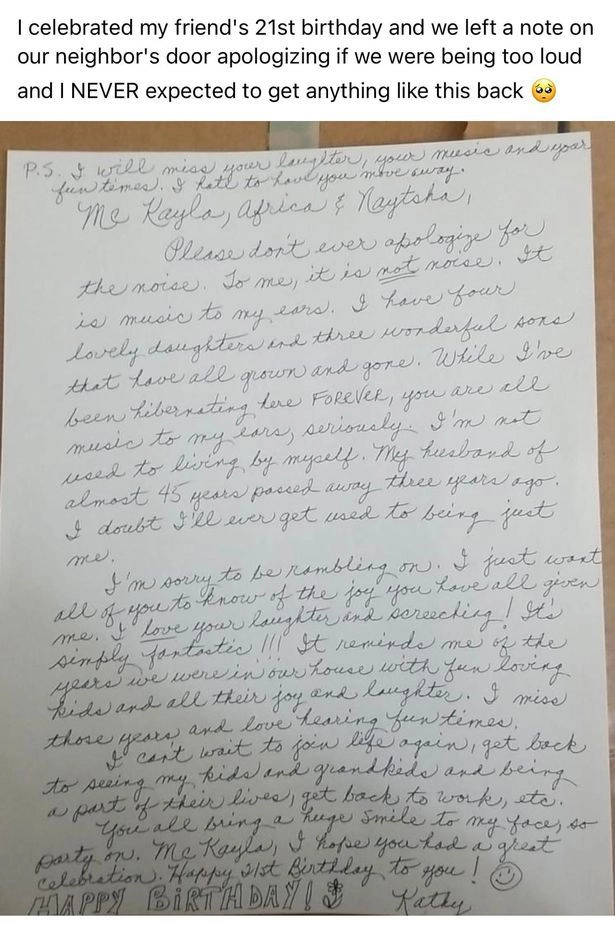 I celebrated my friend's 21st birthday and we left a note on
our neighbor's door apologizing if we were being too loud
and I NEVER expected to get anything like this back 🥺
P.S. I will miss your laughter, your music and your
fun times. I hate to have you move away.
McKayla, Africa & Naytsha,
Please don't ever apologize for
the noise. To me, it is not noise. It
is music to my ears. I have four
lovely daughters and three wonderful sons
that have all grown and gone. While I've
been hibernating here FOREVER, you are all
music to my ears, seriously. I'm not
used to living by myself. My husband of
almost 45 years passed away three years ago.
I doubt I'll ever get used to being just
me.
I'm sorry to be rambling on. I just want
all of you to know of the joy you have all given
me. I love your laughter and screeching! It's
simply fantastic!!! It reminds me of the
years we were in our house with fun loving
kids and all their joy and laughter. I miss
those years and love hearing fun times.
I can't wait to join life again, get back
to seeing my kids and grandkids and being
a part of their lives, get back to work, etc.
You all bring a huge smile to my face, so
party on. McKayla, I hope you had a great
celebration. Happy 21st Birthday to you! ☺
HAPPY BIRTHDAY!! Kathy